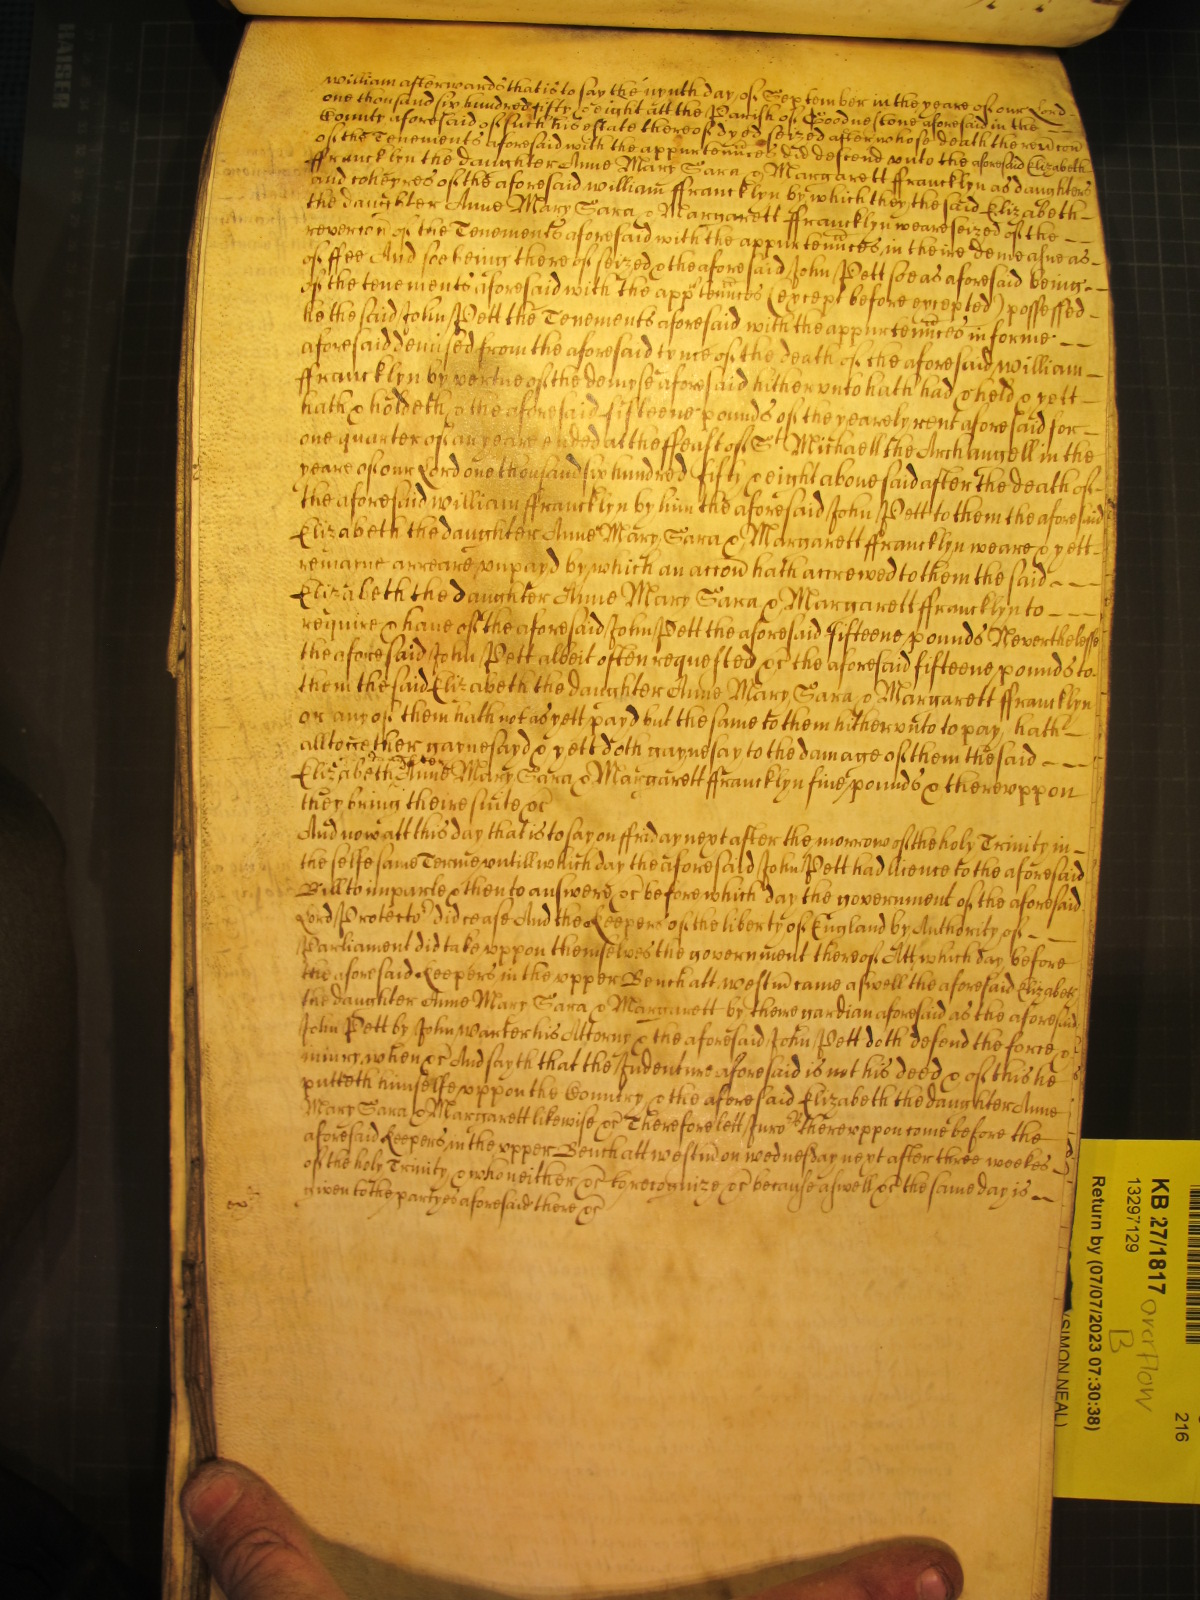 William afterwards that is to say the nynth day of September in the yeare of our Lord
one thousand six hundred fifty & eight att the Parish of Goodnestone aforesaid in the
County aforesaid of such his estate thereof dyed seized after whose death the revercon
of the Tenements aforesaid with the appurtennces did descend vnto the aforesaid Elizabeth
ffrancklyn the daughter Anne Mary Sara & Margarett ffrancklyn as daughters
and coheyres of the aforesaid William ffrancklyn by which they the said Elizabeth
the daughter Anne Mary Sara & Margarett ffrancklyn weare seized of the
revercon of the Tenements aforesaid with the appurtennces in theire demeasne as
of ffee And soe being thereof seized & the aforesaid John Pett soe as aforesaid being
of the tenements aforesaid with the appurtennces (except before excepted) possessed
he the said John Pett the Tenements aforesaid with the appurtennces in forme
aforesaid demised from the aforesaid tyme of the death of the aforesaid William
ffrancklyn by vertue of the demyse aforesaid hitherunto hath had & held & yett
hath & holdeth & the aforesaid fifteene pounds of the yearely rent aforesaid for
one quarter of an yeare ended at the ffeast of St Michaell the Archangell in the
yeare of our Lord one thousand six hundred fifty & eight abovesaid after the death of
the aforesaid William ffrancklyn by him the aforesaid John Pett to them the aforesaid
Elizabeth the daughter Anne Mary Sara & Margarett ffrancklyn weare & yett
remayne arreare vnpayd by which an accon hath accrewed to them the said
Elizabeth the daughter Anne Mary Sara & Margarett ffrancklyn to
require & have of the aforesaid John Pett the aforesaid fifteene pounds Neverthelesse
the aforesaid John Pett albeit often requested &c the aforesaid fifteene pounds to
them the said Elizabeth the daughter Anne Mary Sara & Margarett ffrancklyn
or any of them hath not as yett payd but the same to them hitherunto to pay hath
alltogether gaynesayd & yett doth gaynesay to the damage of them the said
Elizabeth the daughter Anne Mary Sara & Margarett ffrancklyn five pounds & therevppon
they bring theire suite &c
And now att this day that is to say on ffriday next after the morrow of the holy Trinity in
the selfe same Terme vntill which day the aforesaid John Pett had licence to the aforesaid
Bill to imparle & then to answere &c before which day the government of the aforesaid
Lord Protector did cease And the Keepers of the liberty of England by Authority of
Parliament did take vppon themselves the government thereof Att which day before
the aforesaid Keepers in the vpper Bench att Westm came aswell the aforesaid Elizabeth
the daughter Anne Mary Sara & Margarett by there gardian aforesaid as the aforesaid
John Pett by John Warter his Attorny & the aforesaid John Pett doth defend the force &
iniury when &c And sayth that the Indenture aforesaid is not his deed & of this he
putteth himselfe vppon the Country & the aforesaid Elizabeth the daughter Anne
Mary Sara & Margarett likewise &c Therefore lett a Jury therevppon come before the
aforesaid Keepers in the vpper Bench att Westm on wednesday next after three weekes
of the holy Trinity & who neither &c to recognize &c because aswell &c the same day is
given to the partyes aforesaid there &c
KB 27/1817
overflow
B
13297129
Return by (07/07/2023 07:30:38)
(SIMON NEAL)
216